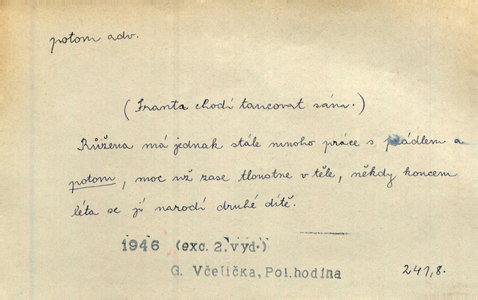 potom adv.
(Franta chodí tancovat sám.)
Růžena má jednak stále mnoho práce s prádlem a
potom, moc už zase tloustne v těle, někdy koncem
léta se jí narodí druhé dítě.
1946 (exc. 2. vyd.)
G. Včelička, Pol. hodina
241,8.